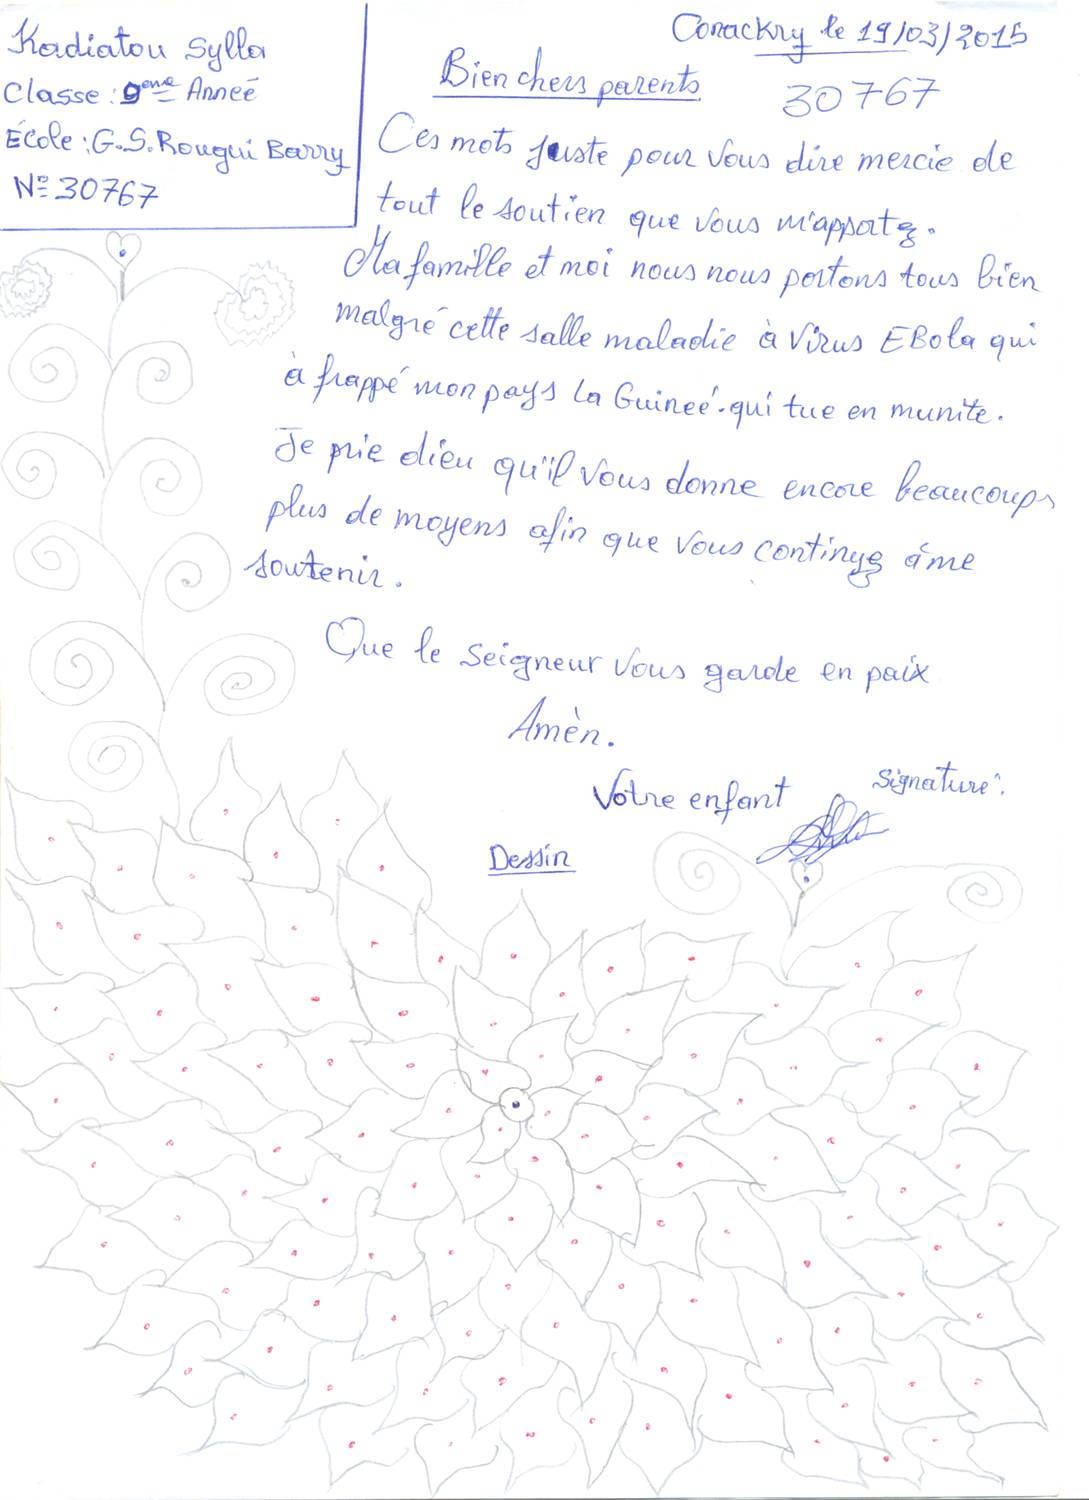 Kadiatou Sylla
Classe : 9ème Anneé
École : G.S. Rougui Barry
N° 30767
Conackry le 19/03/2015
Bien chers parents
30767
Ces mots juste pour vous dire mercie de
tout le soutien que vous m'apportez.
Ma famille et moi nous nous portons tous bien
malgré cette salle maladie à Virus EBola qui
à frappé mon pays la Guineé. qui tue en munite.
Je prie dieu qu'il vous donne encore beaucoups
plus de moyens afin que vous continyez âme
soutenir.
Que le seigneur vous garde en paix
Amèn.
Votre enfant
Signature :
Dessin